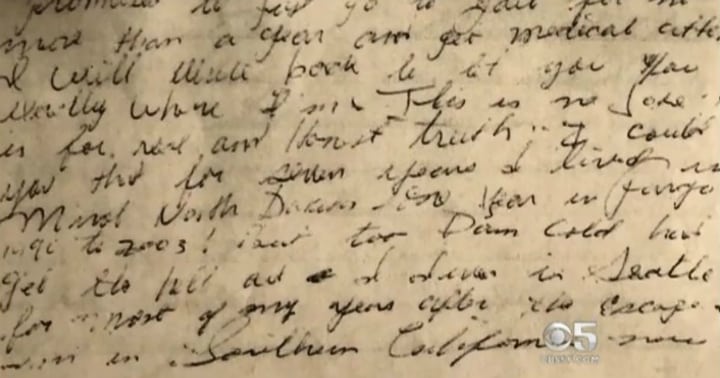 promised to first go to jail for no
more than a year and get medical atten
I will write back to let you you
exactly where I'm This is no Joke
is for real and Honest truth.. I could
you that for seven years I lived in
Minot North Dakota One year in Fargo
to 2003! But too Damn Cold here
get the hell out I lived in Seattle
for most of my years after the escape
in Southern California now
CBS 5
cbs5.com